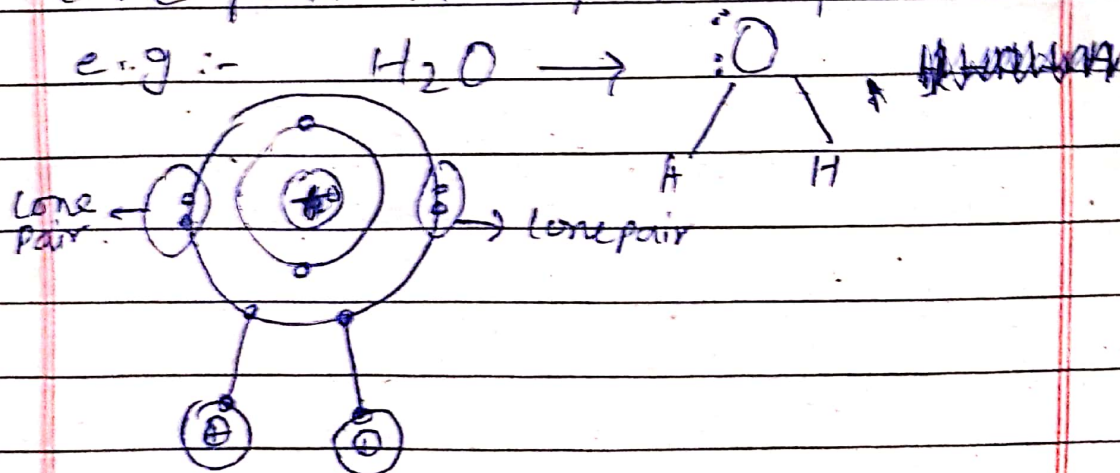 e.g :- H2O → :Ö
A H
lone pair.
lone pair